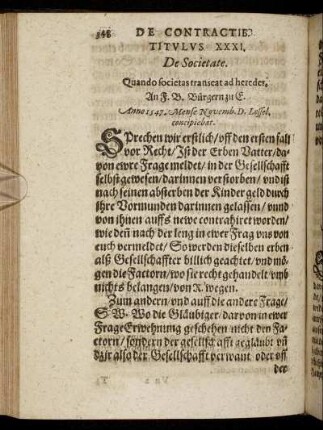 348 DE CONTRACTIB.
TITVLVS XXXI.
De Societate.
Quando societas transeat ad heredes,
An F. B. Bürgern zu E.
Anno 1547. Mense Novemb. D. Fassol.
concipiebat.
Sprechen wir erstlich / uff den ersten fall
vor Recht / Ist der Erben Vatter / da-
von ewre Frage meldet / in der Gesellschafft
selbst gewesen / darinnen verstorben / und ist
nach seinen absterben der Kinder geld durch
ihre Vormunden darinnen gelassen / und
von ihnen auffs newe contrahiret worden /
wie deñ nach der leng in ewer Frag uns von
euch vermeldet / So werden dieselben erben
alß Gesellschaffter billich geachtet / und mö-
gen die Factorn / wo sie recht gehandelt / umb
nichts belangen / von R. wegen.
Zum andern / und auff die andere Frage /
S. W. Wo die Gläubiger / darvon in ewer
Frage Erwehnung geschehen nicht den Fa-
ctorn / sondern der gesellschafft gegläubt uñ
dafür also der Gesellschafft verwant oder uff
der